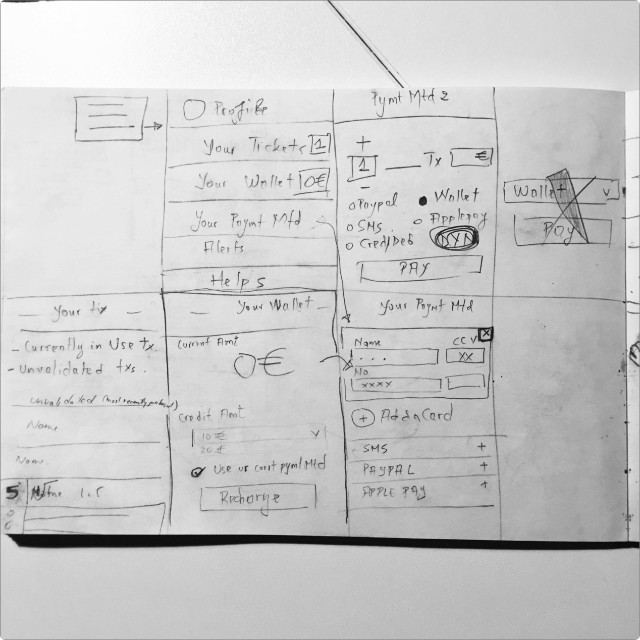 Profile
Your Tickets 1
Your Wallet 0€
Your Paymt Mtd
Alerts
Help s
Pymt Mtd 2
+
1 Tx €
-
Paypal
Wallet
SMS
Applepay
Cred/Deb
PAY
Wallet v
PAY
Your tx
- Currently in Use tx.
- Unvalidated txs.
Name
Name
5
Your Wallet
Current Amt
0€
Credit Amt
10€ v
20€
Pymt Mtd
Recharge
Your Paymt Mtd
x
Name
CCV
. . . .
XX
No
xxxx
+ Add a Card
SMS +
PAYPAL +
APPLE PAY +